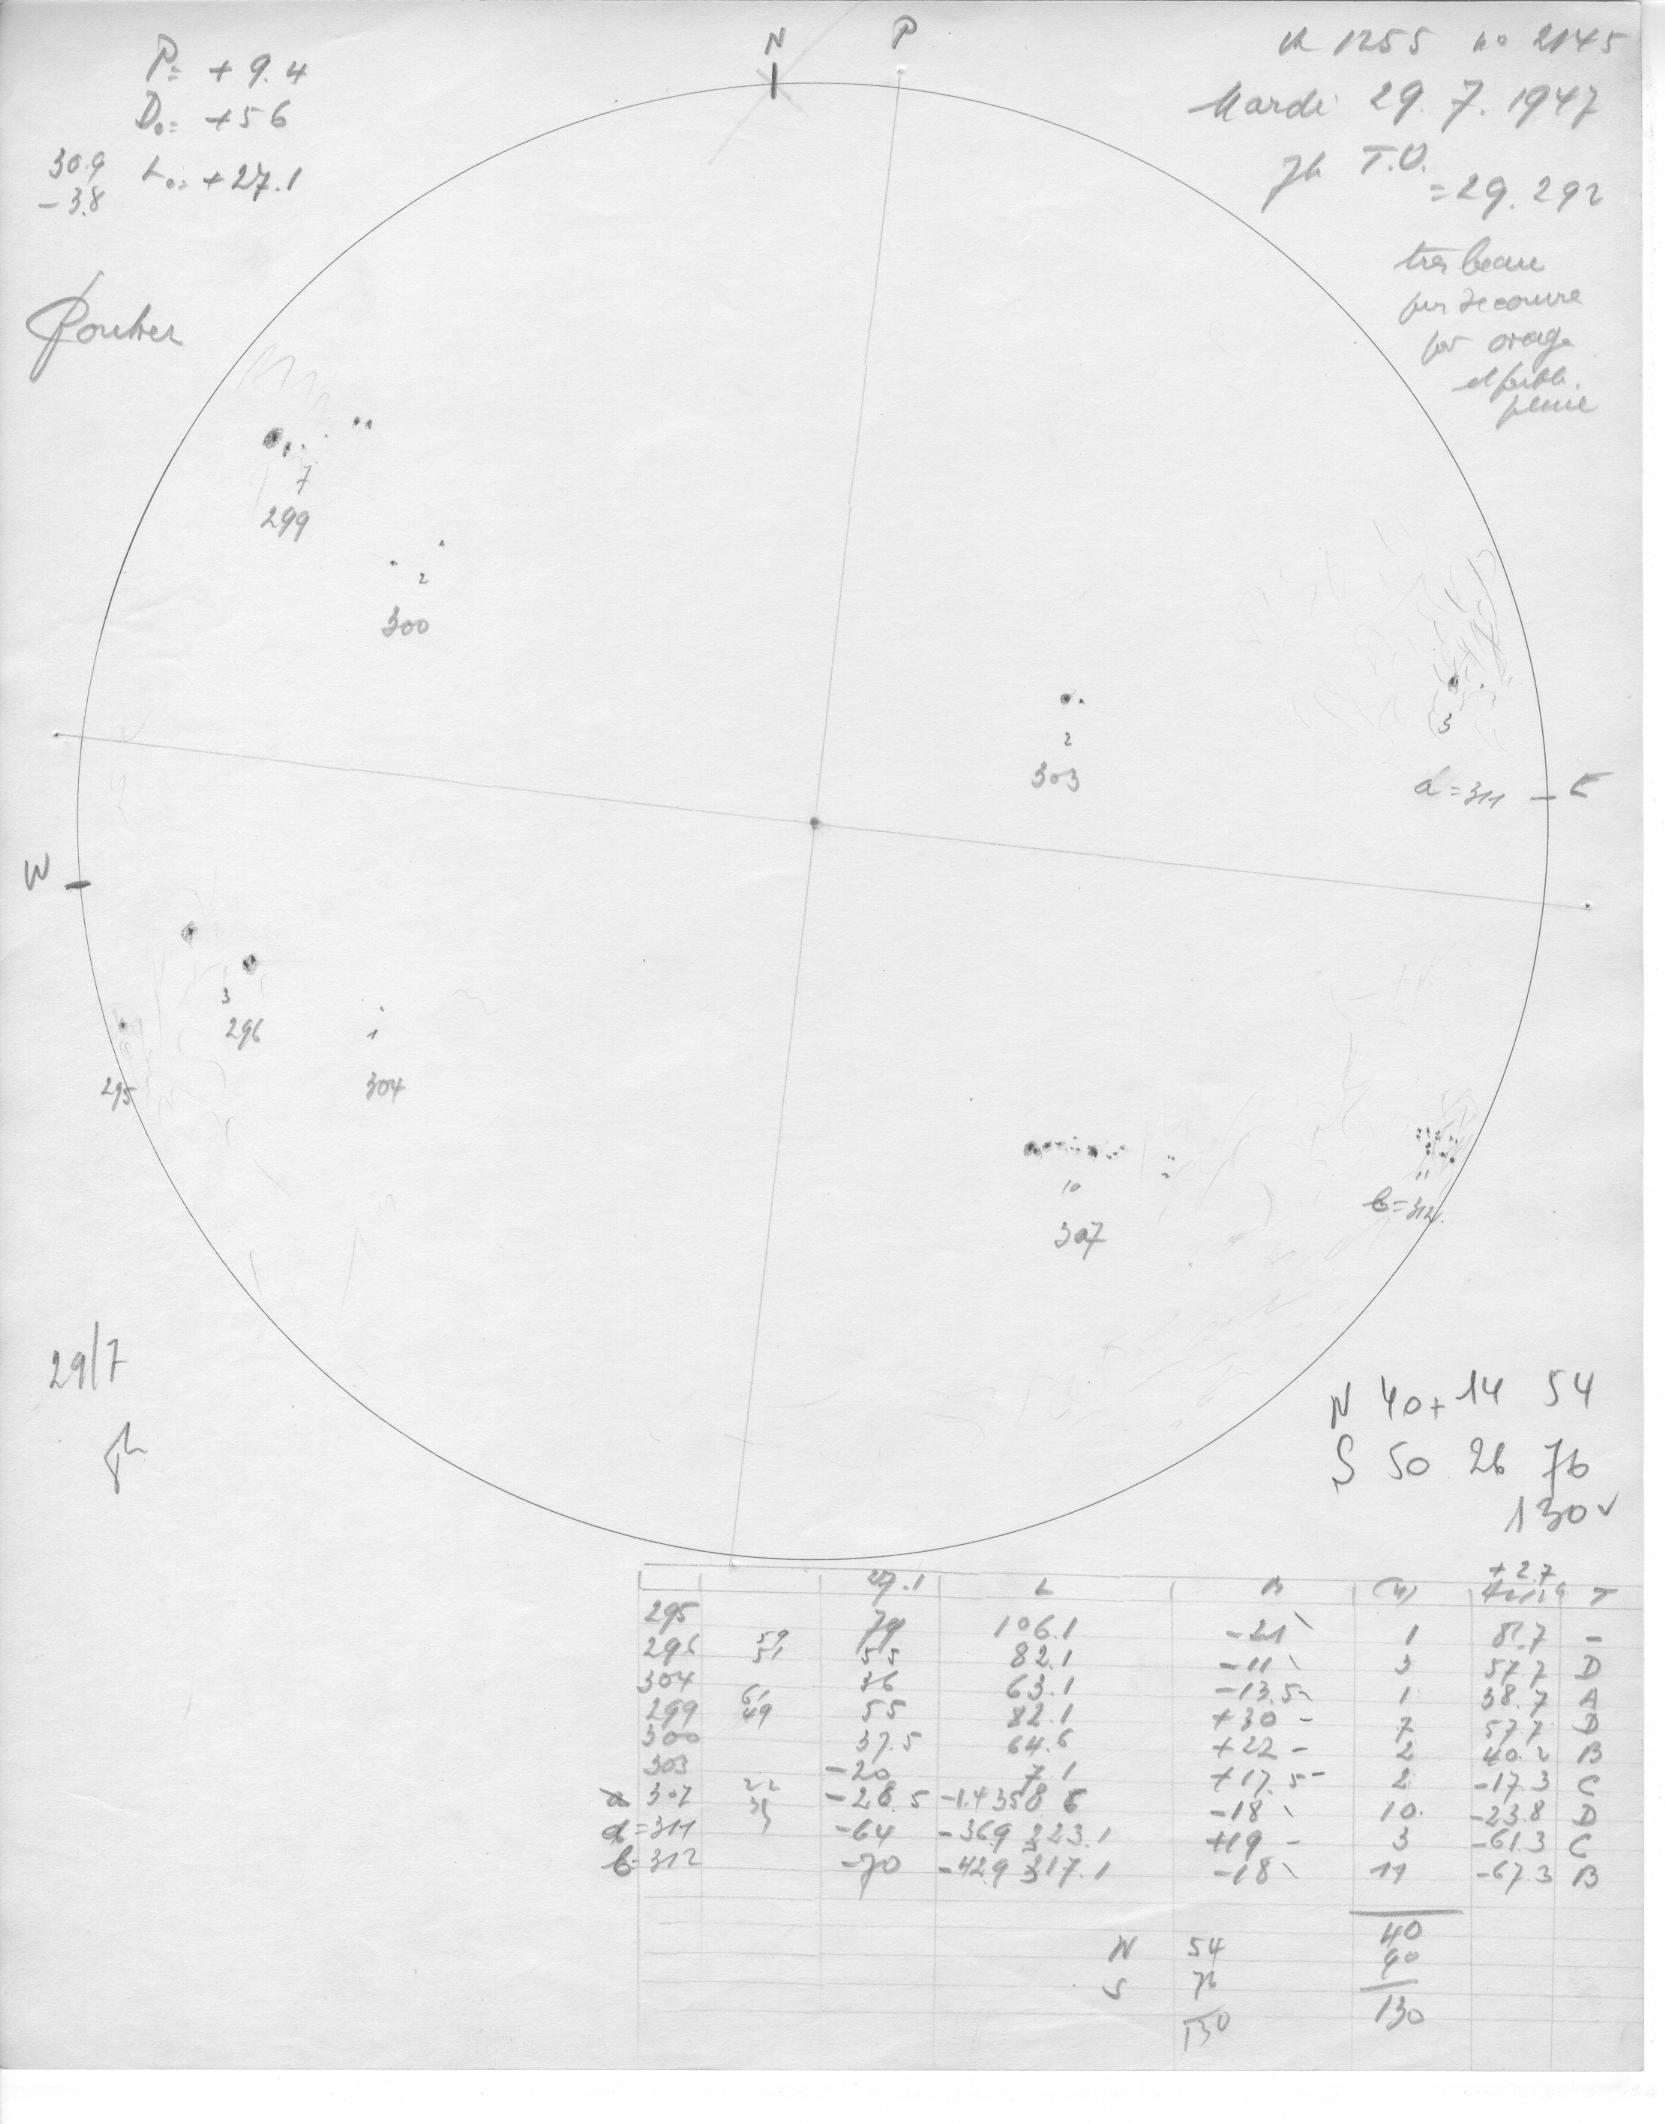 N P
P= +9.4
D₀= +56
30.9 L₀= +27.1
-3.8
R 1255 no 2145
Mardi 29.7.1947
7h T.U.
=29.292
tres beau
par orage
et faible
pluie
7
299
2
300
2
303
3
a=311
E
W
3
296
295
1
304
10
307
11
b=312
29/7
N 40+14 54
S 50 26 76
130 ✓
27.1 L B +2.7 T
295 79 106.1 -21 1 81.7 -
296 59 51 55 82.1 -11 3 57.7 D
304 36 63.1 -13.5 1 38.7 A
299 61 49 55 82.1 +30 7 57.7 D
300 37.5 64.6 +22 2 40.2 B
303 -20 7.1 +17.5 2 -17.3 C
307 22 31 -26.5 -1.4 358 6 -18 10 -23.8 D
a=311 -64 -36.9 323.1 +19 3 -61.3 C
b=312 -70 -42.9 317.1 -18 11 -67.3 B
40
N 54 90
S 76
130 130